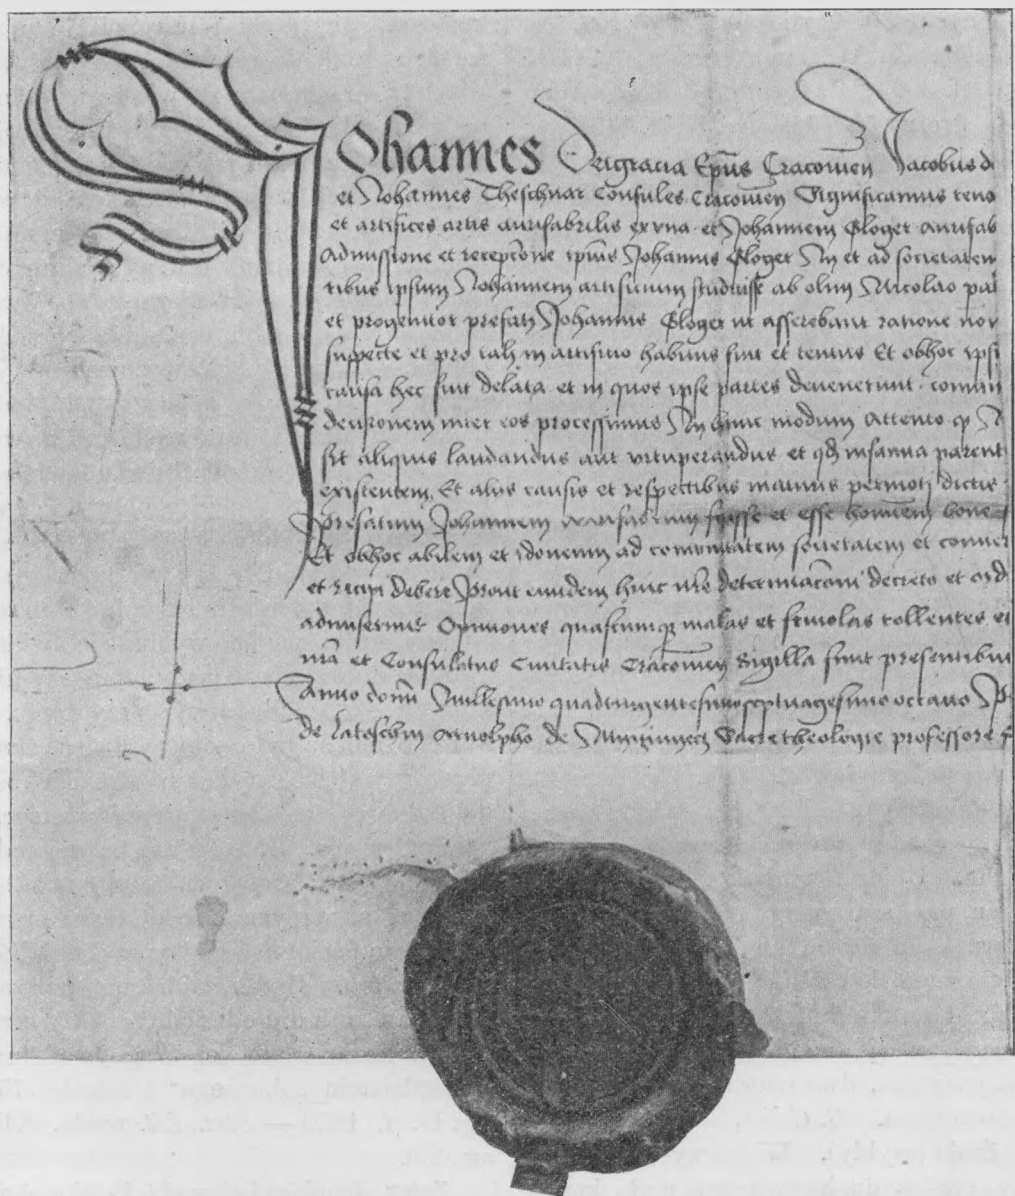 Johannes Deigracia Epūs Cracowień Jacobus d
et Johannes Theschnar Consules Cracowień Significamus teno
et artifices artis aurifabrilis ex vna et Johannem Gloger aurifab
Admissione et recepcōne ipius Johannis Gloger In et ad societatem
tibus ipsum Johannem artificium studuisse ab olim Nicolao
et progenitor prefati Johannis Gloger ut asserebant ratione
suspecte et pro tali in artificio habitus sint et tentus Et obhoc ipsi
causa hec sint delata et in quos ipse partes devenerunt
decisionem inter eos processimus In hunc modum Attento
sit aliquis laudandus aut vituperandus et infamia parenti
existentem Et alijs causis et respectibus maturis permoti dictis
Prefatum Johannem Aurifabrum fuisse et esse hominem bone
Et obhoc abilem et idoneum ad comunitatem societatem et
et recipi debere Prout eundem huic determinacōni decreto et
admiserunt Opiniones quascumque malas et frivolas tollentes
et Consulatus Civitatis Cracovień Sigilla sunt presentibus
Anno domini Millesimo quadringentesimoseptuagesimo octavo
de Latoschin Arnolpho de Sacre theologie professore